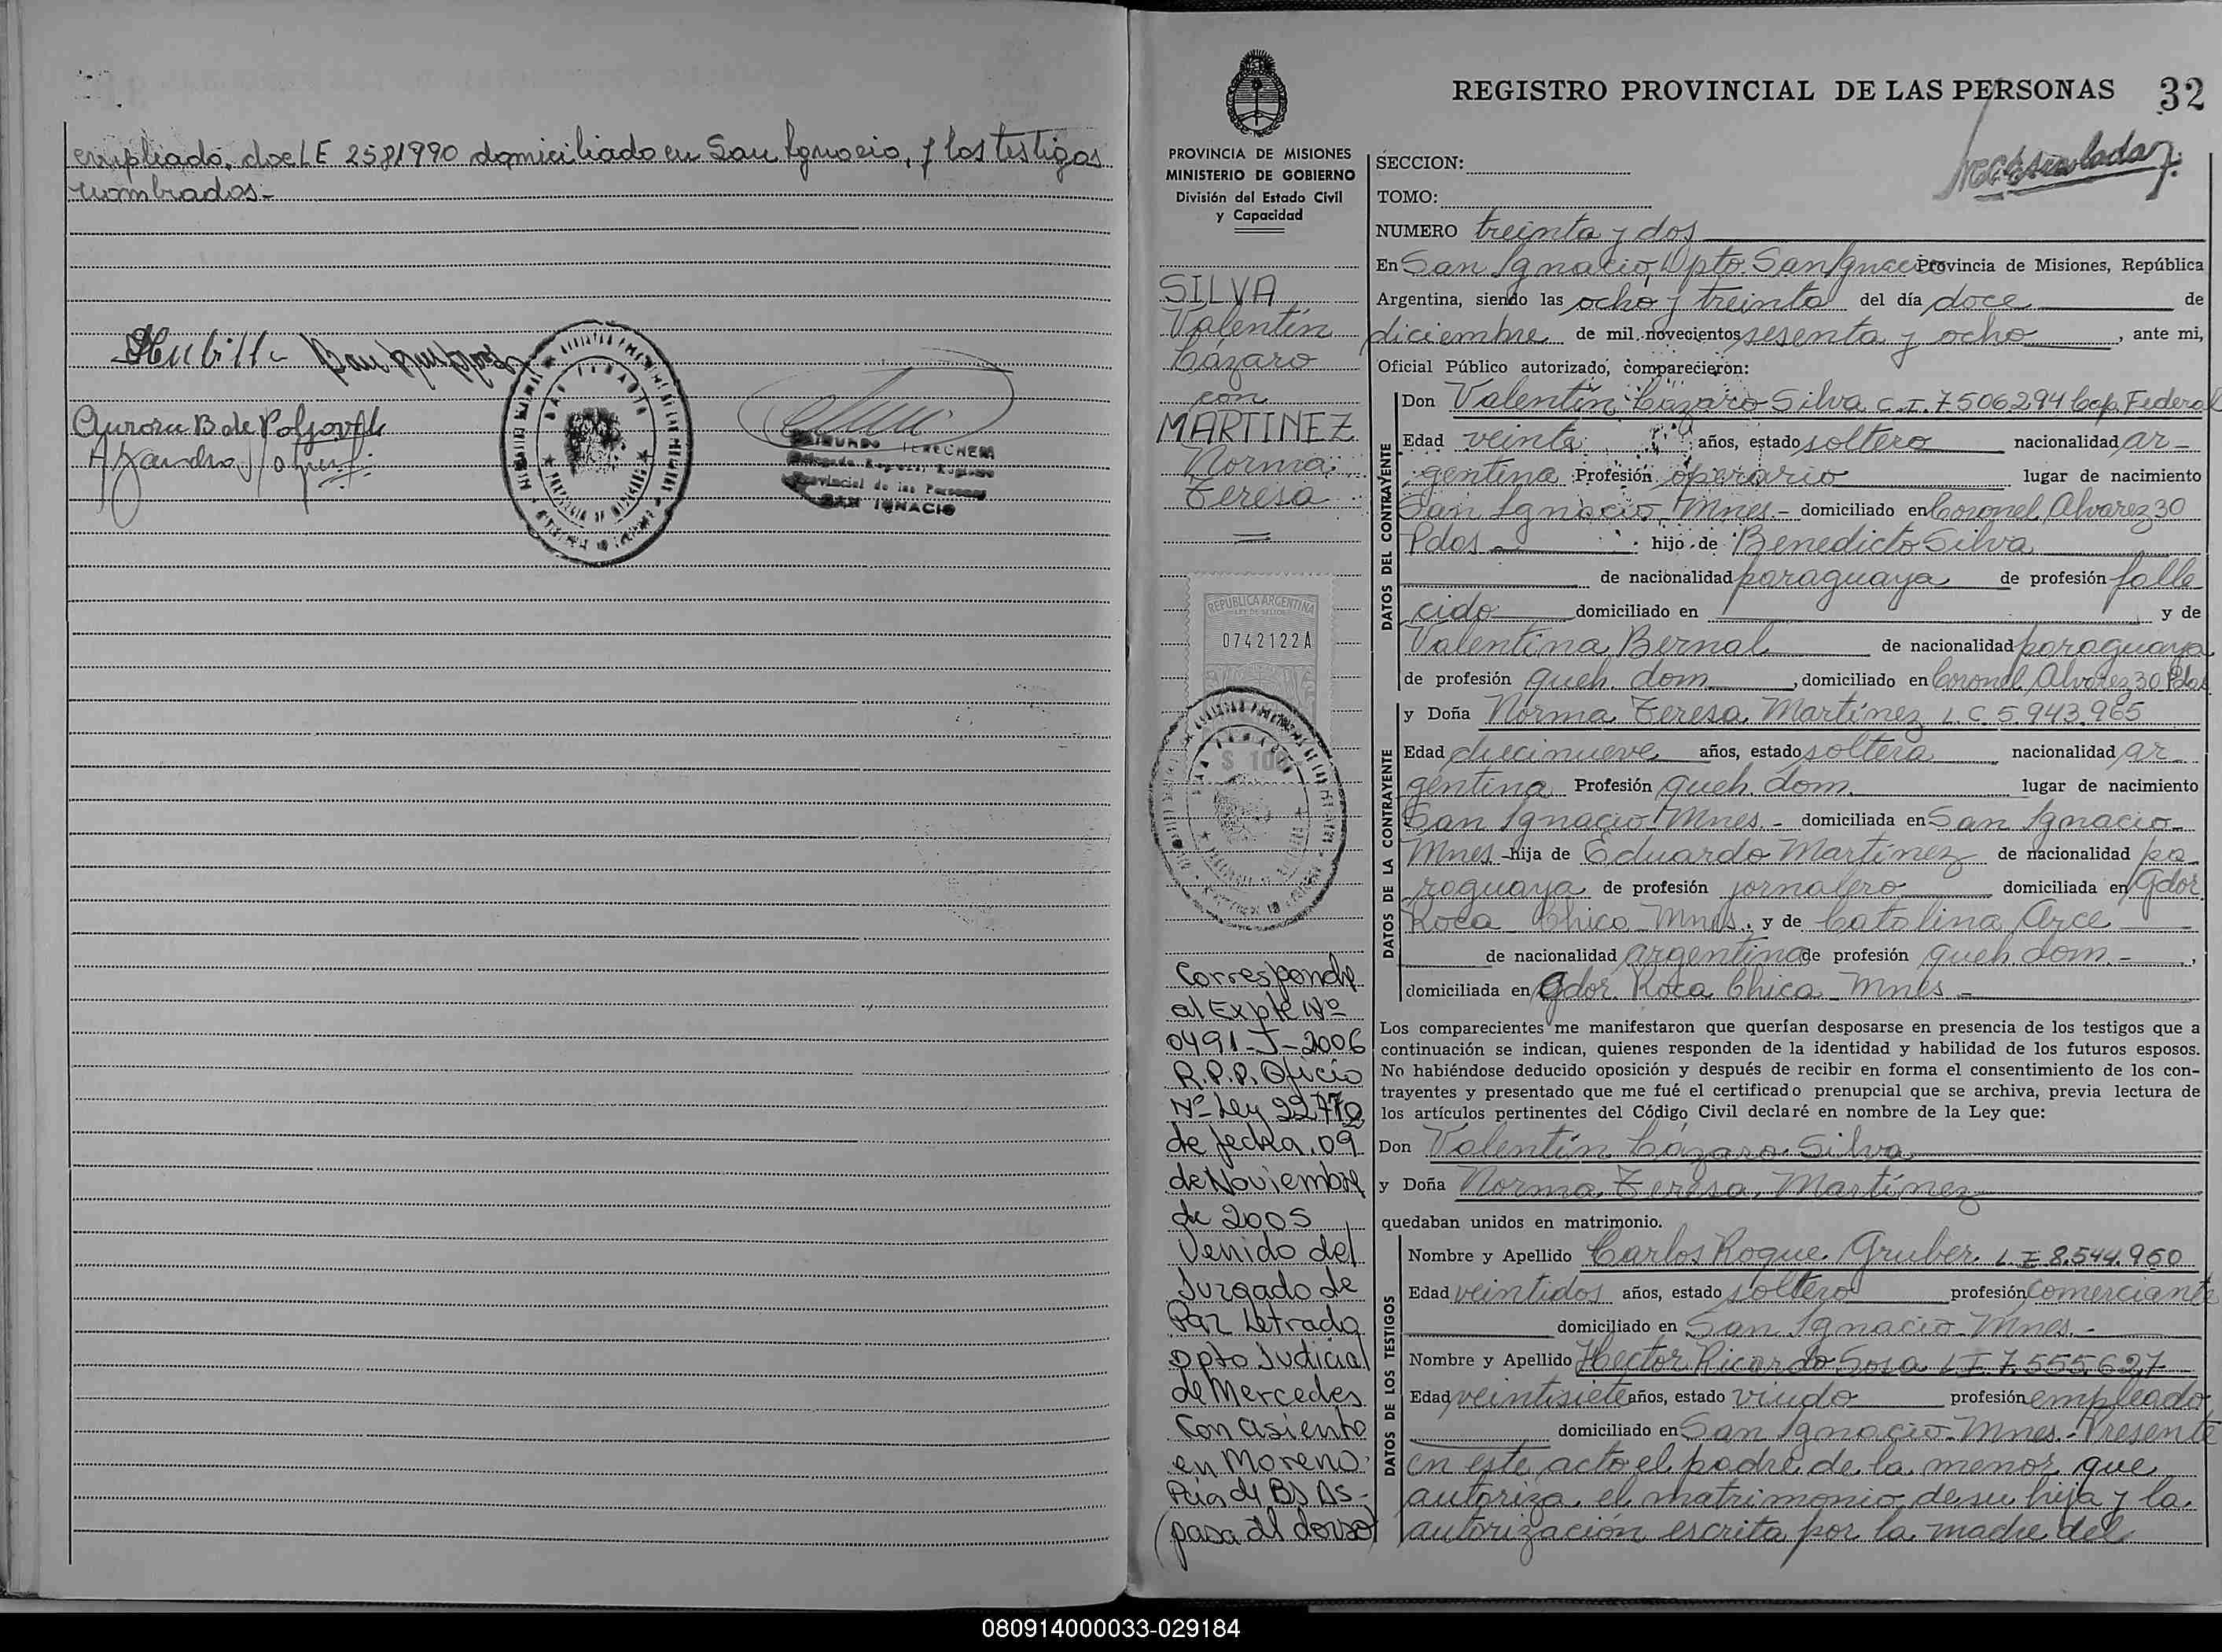 empleado, doc L E 2581990 domiciliado en San Ignacio, y los testigos
nombrados.-
Aurora B de
SAN IGNACIO
REGISTRO PROVINCIAL DE LAS PERSONAS 32
PROVINCIA DE MISIONES
MINISTERIO DE GOBIERNO
División del Estado Civil
y Capacidad
SILVA
Valentín
Lázaro
con
MARTINEZ
Norma
Teresa
REPUBLICA ARGENTINA
0742122A
$ 100
Corresponde
al Expte Nº
0491-J-2006
R.P.P. Oficio
Nº Ley 22.172
de fecha 09
de Noviembre
de 2005
Venido del
Juzgado de
Paz Letrado
Dpto Judicial
de Mercedes
Con asiento
en Moreno
Pcia de Bs As-
(pasa al dorso)
SECCION:
TOMO:
NUMERO treinta y dos
En San Ignacio, Dpto. San Ignacio Provincia de Misiones, República
Argentina, siendo las ocho y treinta del día doce de
diciembre de mil novecientos sesenta y ocho, ante mi,
Oficial Público autorizado, comparecieron:
DATOS DEL CONTRAYENTE
Don Valentín Lázaro Silva C.I. 7506294 Cap. Federal
Edad veinte años, estado soltero nacionalidad ar-
gentina Profesión operario lugar de nacimiento
San Ignacio Mnes.- domiciliado en Coronel Alvarez 30
Pdas - hijo de Benedicto Silva
de nacionalidad paraguaya de profesión falle
cido domiciliado en y de
Valentina Bernal de nacionalidad paraguaya
de profesión queh. dom, domiciliado en Coronel Alvarez 30 Pdas
DATOS DE LA CONTRAYENTE
y Doña Norma Teresa Martínez L.C. 5.943.965
Edad diecinueve años, estado soltera nacionalidad ar
gentina Profesión queh. dom. lugar de nacimiento
San Ignacio Mnes.- domiciliada en San Ignacio
Mnes - hija de Eduardo Martínez de nacionalidad pa
raguaya de profesión jornalero domiciliada en Gdor
Roca Chico Mnes. y de Catalina Arce
de nacionalidad argentina de profesión queh. dom.-,
domiciliada en Gdor. Roca Chica Mnes -
Los comparecientes me manifestaron que querían desposarse en presencia de los testigos que a
continuación se indican, quienes responden de la identidad y habilidad de los futuros esposos.
No habiéndose deducido oposición y después de recibir en forma el consentimiento de los con-
trayentes y presentado que me fué el certificado prenupcial que se archiva, previa lectura de
los artículos pertinentes del Código Civil declaré en nombre de la Ley que:
Don Valentín Lázaro Silva
y Doña Norma Teresa, Martínez
quedaban unidos en matrimonio.
DATOS DE LOS TESTIGOS
Nombre y Apellido Carlos Roque Gruber L.E 8.544.960
Edad veintidos años, estado soltero profesión comerciante
domiciliado en San Ignacio Mnes.-
Nombre y Apellido Hector Ricardo Sosa L E 7.555.627
Edad veintisiete años, estado viudo profesión empleado
domiciliado en San Ignacio - Mnes.- Presente
en este acto el padre de la menor que
autoriza el matrimonio de su hija y la
autorización escrita por la madre del
080914000033-029184